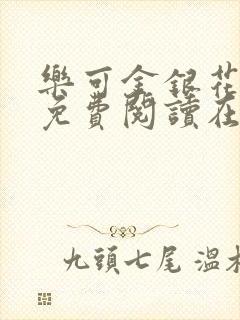 樂可金銀花
免費閱讀在
九頭七尾 溫